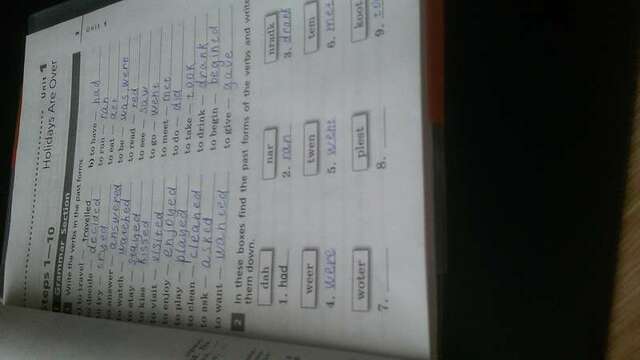 Unit 1
Steps 1—10
Holidays Are Over
Grammar Section
Write the verbs in the past forms.
a) to travel — travelled
to decide — decided
to try —
to answer — answered
to watch — watched
to stay — stayed
to kiss — kissed
to visit — visited
to enjoy — enjoyed
to play — played
to clean — cleaned
to ask — asked
to want — wanted
b) to have — had
to run — ran
to eat —
to be — was, were
to read — red
to see — saw
to go — went
to meet — met
to do — did
to take — took
to drink — drank
to begin — begined
to give — gave
2 In these boxes find the past forms of the verbs and write
them down.
dah nar nradk
1. had 2. ran 3. drank
weer twen tem
4. were 5. went 6. met
woter plest koot
7. 8. 9.